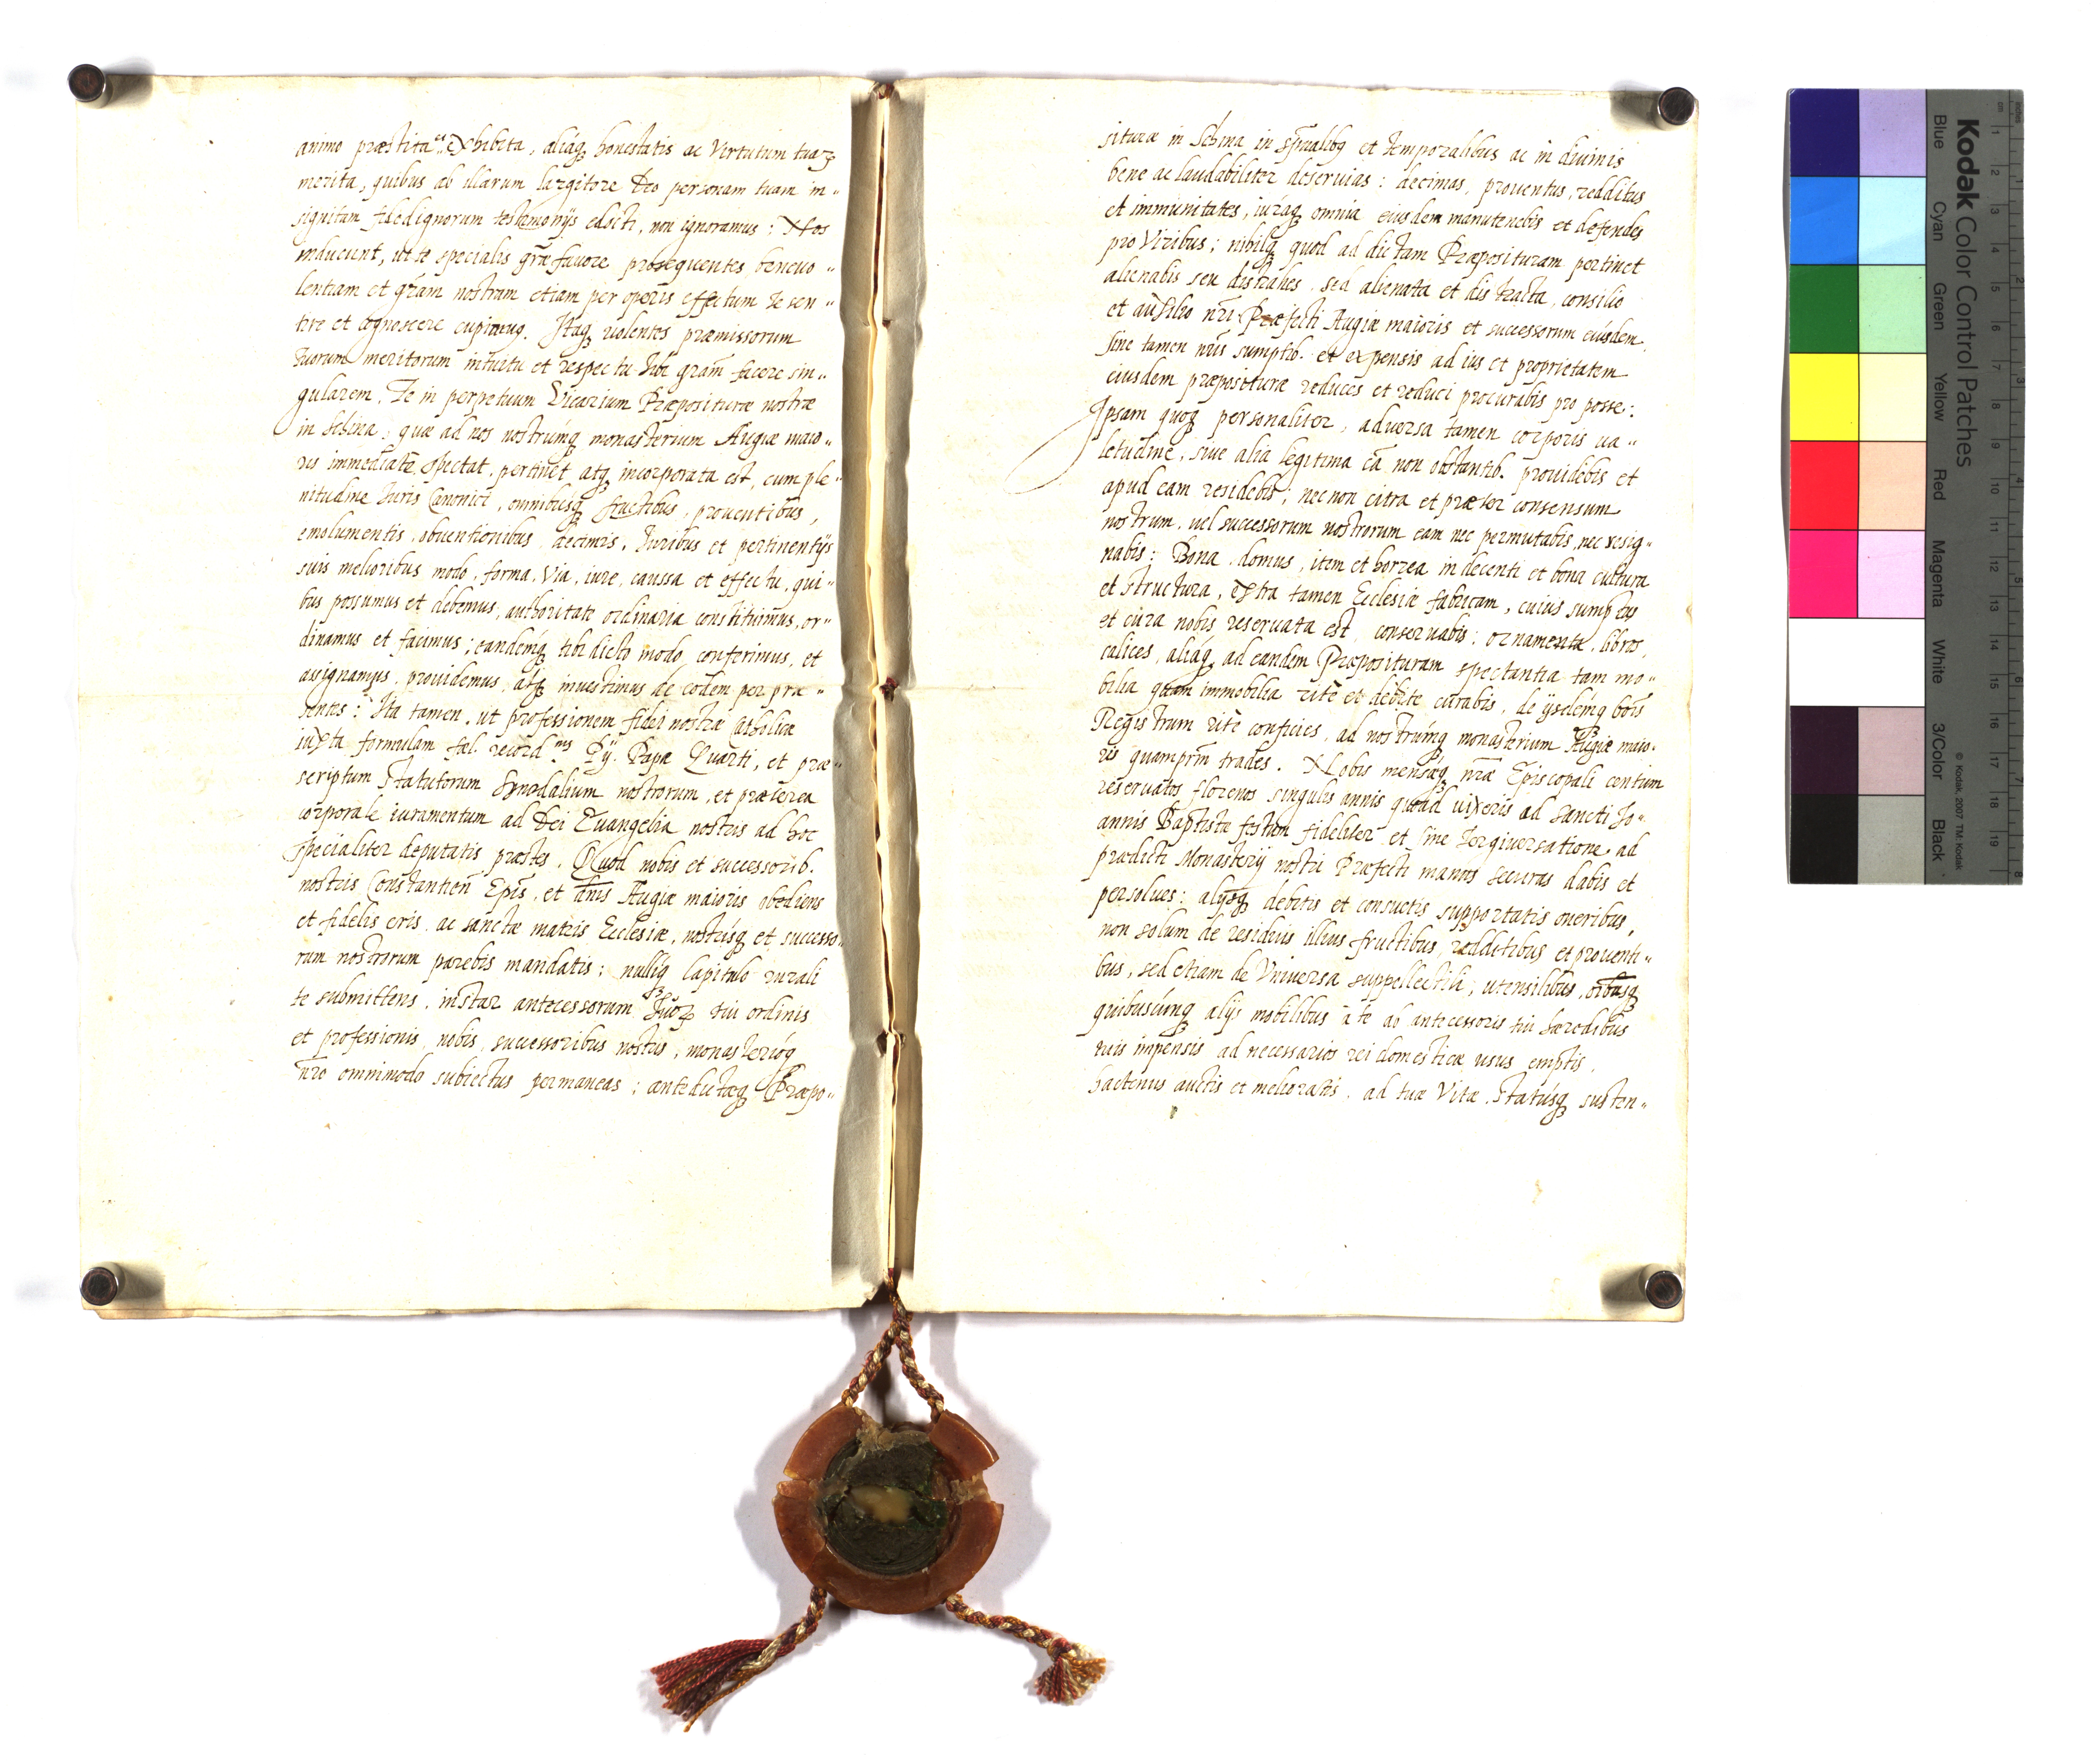 animo præstita et exhibita, aliáq₃ honestatis ac Virtutum tuaꝝ
merita, quibus ab illarum largitore Deo personam tuam in„
signitam fidedignorum testimonijs edocti, non ignoramus: Nos
inducunt, ut te specialis grãe favore prosequentes benevo„
lentiam et grãm nostram etiam per operis effectum te sen„
tire et agnoscere cupiamus. Itaq₃ volentes præmissorum
tuorum meritorum intuitu et respectu tibi grãm facere sin„
gularem. Te in perpetuum Vicarium Præpositurae nostræ
in Schina, quæ ad nos nostrúmq₃ monasterium Augiæ maio„
ris immediatè spectat, pertinet atq₃ incorporata est, cum ple„
nitudine Iuris Canonici, omnibusq₃ fructibus, proventibus,
emolumentis, obventionibus, decimis, Iuribus et pertinentijs
suis melioribus modo, forma, via, iure, caussa et effectu, qui„
bus possumus et debemus, authoritate ordinaria constituimus, or„
dinamus et facimus; eandémq₃ tibi dicto modo, conferimus, et
assignamus, providemus, atq₃ investimus de eodem per præ„
sentes: Ita tamen, ut professionem fidei nostræ Catholicæ
iuxta formulam fæl. record.nis Pij Papæ Quarti, et præ„
scriptum Statutorum Synodalium nostrorum, et præterea
corporale iuramentum ad Dei Evangelia nostris ad hoc
specialiter deputatis præstes. Quod nobis et successorib.
nostris Constantien̄ Epis̄, et dn̄is Augiæ maioris obediens
et fidelis eris, ac sanctæ matris Ecclesiæ, nostrísq₃ et successo„
rum nostrorum parebis mandatis; nullíq₃ Capitulo rurali
te submittens, instar antecessorum tuoꝝ tui ordinis
et professionis, nobis, successoribus nostris, monasterióq₃
nr̄o omnimodo subiectus permaneas; antedictæq₃ Præpo„
situræ in Schina in spũalibq₃ et temporalibus ac in divinis
bene ac laudabiliter deservias: decimas, proventus, redditus
et immunitates, iuráq₃ omnia eiusdem manutenebis et defendes
pro Viribus; nihilq₃ quod ad dictam Præposituram pertinet
alienabis seu distrahes, sed alienata et distracta, consilio
et auxilio nr̄i Præfecti Augiæ maioris et successorum eiúsdem,
sine tamen nr̄is sumptib. et expensis ad ius et proprietatem
eiusdem præpositurae reduces et reduci procurabis pro posse:
Ipsam quoq₃ personaliter, adversa tamen corporis va„
letudine, sive alia legitima cã non obstantib. providebis et
apud eam residebis; nec non citra et præter consensum
nostrum, vel successorum nostrorum eam nec permutabis, nec resig„
nabis: Bona, domus, item et horrea in decenti et bona cultura
et structura, extra tamen Ecclesiæ fabricam, cuius sumptus
et cura nobis reservata est, conservabis: ornamenta, libros,
calices, aliáq₃ ad eandem Præposituram spectantia tam mo„
bilia quam immobilia ritè et debitè curabis, de ijsdémq₃ bōīs
Registrum ritè conficies, ad nostrúmq₃ monasterium Augiæ maio„
ris quamprīm trades. Nobis mensæq₃ nr̄æ Episcopali centum
reservatos florenos singulis annis quoad vixeris ad Sancti Jo„
annis Baptistæ festum fideliter et sine tergiversatione, ad
prædicti Monasterij nostri Præfecti manus securas dabis et
persolves: alijsq₃ debitis et consuetis supportatis oneribus,
non solum de residuis illius fructibus, redditibus et proventi„
bus, sed etiam de Universa suppellectili, utensilibus, oībusq₃
quibuscúmq₃ alijs mobilibus à te ab antecessoris tui hæredibus
tuis impensis ad necessarios rei domesticæ usus emptis,
hactenus auctis et melioratis, ad tuæ Vitæ, Statúsq₃ susten„
Kodak Color Control Patches
Blue Cyan Green Yellow Red Magenta White 3/Color Black
© Kodak, 2007 TM: Kodak
1 2 3 4 5 6 7 8 9 10 11 12 13 14 15 16 17 18 19